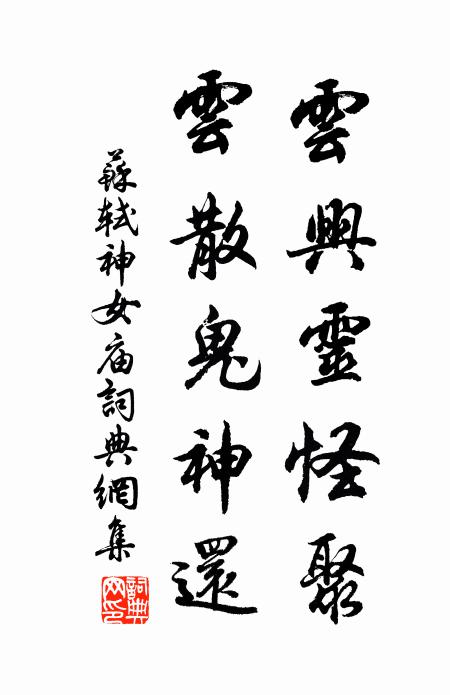 雲興靈怪聚
雲散鬼神還
蘇軾神女庙詞典網集
詞典網印